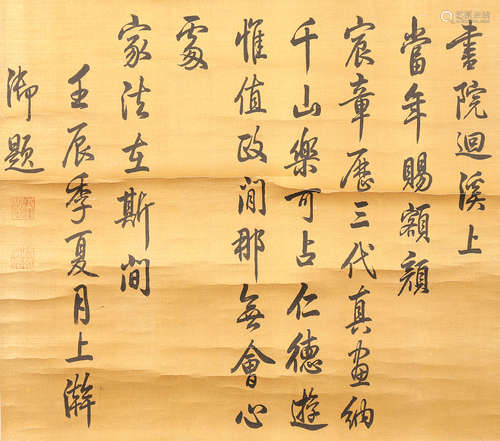 書院迴溪上
當年賜額顏
宸章歷三代真畫納
千山樂可占仁德遊
惟值政閒那無會心
處
家法在斯間
壬辰季夏月上澣
御題